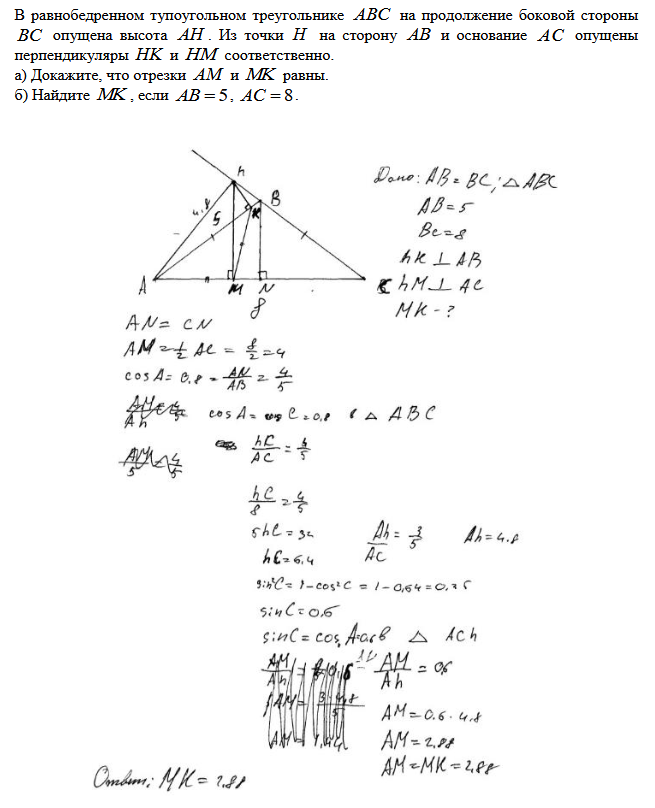 В равнобедренном тупоугольном треугольнике ABC на продолжение боковой стороны
BC опущена высота AH. Из точки H на сторону AB и основание AC опущены
перпендикуляры HK и HM соответственно.
а) Докажите, что отрезки AM и MK равны.
б) Найдите MK, если AB = 5, AC = 8.
h
B
K
4.8
5
A
M
N
C
8
Дано: AB = BC; △ ABC
AB = 5
Bc = 8
hK ⊥ AB
hM ⊥ AC
MK - ?
AN = CN
AM = 1/2 AC = 8/2 = 4
cos A = 0.8 = AN/AB = 4/5
cos A = cos C = 0,8 в △ ABC
hC/AC = 4/5
hC/8 = 4/5
5hC = 32
hC = 6,4
Ah/AC = 3/5
Ah = 4.8
sin²C = 1 - cos²C = 1 - 0,64 = 0,36
sin C = 0,6
sin C = cos A △ ACh
AM/Ah = 0,6
AM = 0.6 · 4.8
AM = 2,88
AM = MK = 2,88
Ответ: MK = 2,88